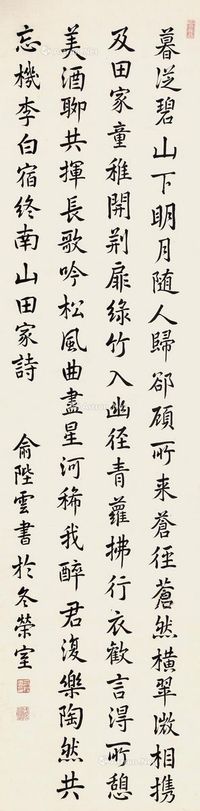 暮從碧山下明月随人歸郤顧所来蒼徑蒼然横翠微相携
及田家童稚開荆扉綠竹入幽徑青蘿拂行衣歡言得所憩
美酒聊共揮長歌吟松風曲盡星河稀我醉君復樂陶然共
忘機李白宿終南山田家詩
俞陛雲書於冬榮室